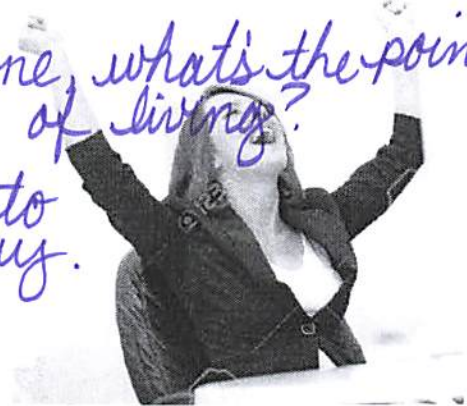 ne, what's the poin
of living?
to
uy.